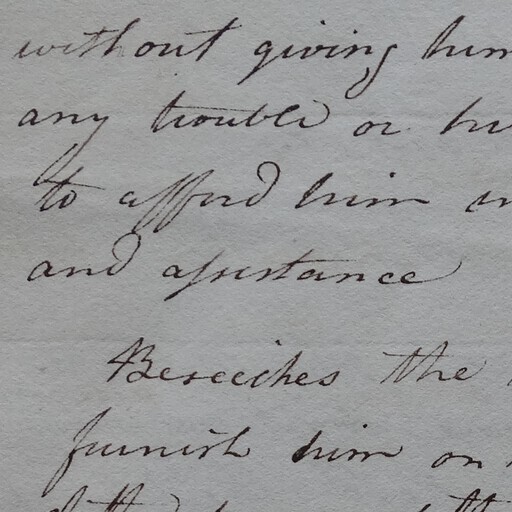 without giving him
any trouble or
to afford him
and assistance
Beseeches the
furnish him on